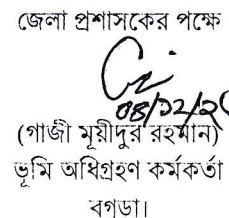 জেলা প্রশাসকের পক্ষে
(গাজী মূয়ীদুর রহমান)
ভূমি অধিগ্রহণ কর্মকর্তা
বগুড়া।